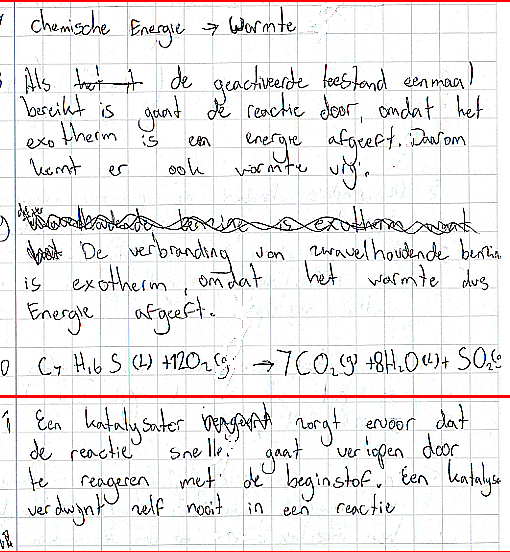 chemische Energie → Warmte
Als de geactiveerde toestand eenmaal
bereikt is gaat de reactie door, omdat het
exotherm is en energie afgeeft. Daarom
komt er ook warmte vrij.
De verbranding van zwavelhoudende benzin
is exotherm, omdat het warmte dus
Energie afgeeft.
C7 H16 S (l) + 12O2 (g) → 7CO2 (g) + 8H2O (l) + SO2 (g
Een katalysator zorgt ervoor dat
de reactie sneller gaat verlopen door
te reageren met de beginstof. Een katalys
verdwijnt zelf nooit in een reactie